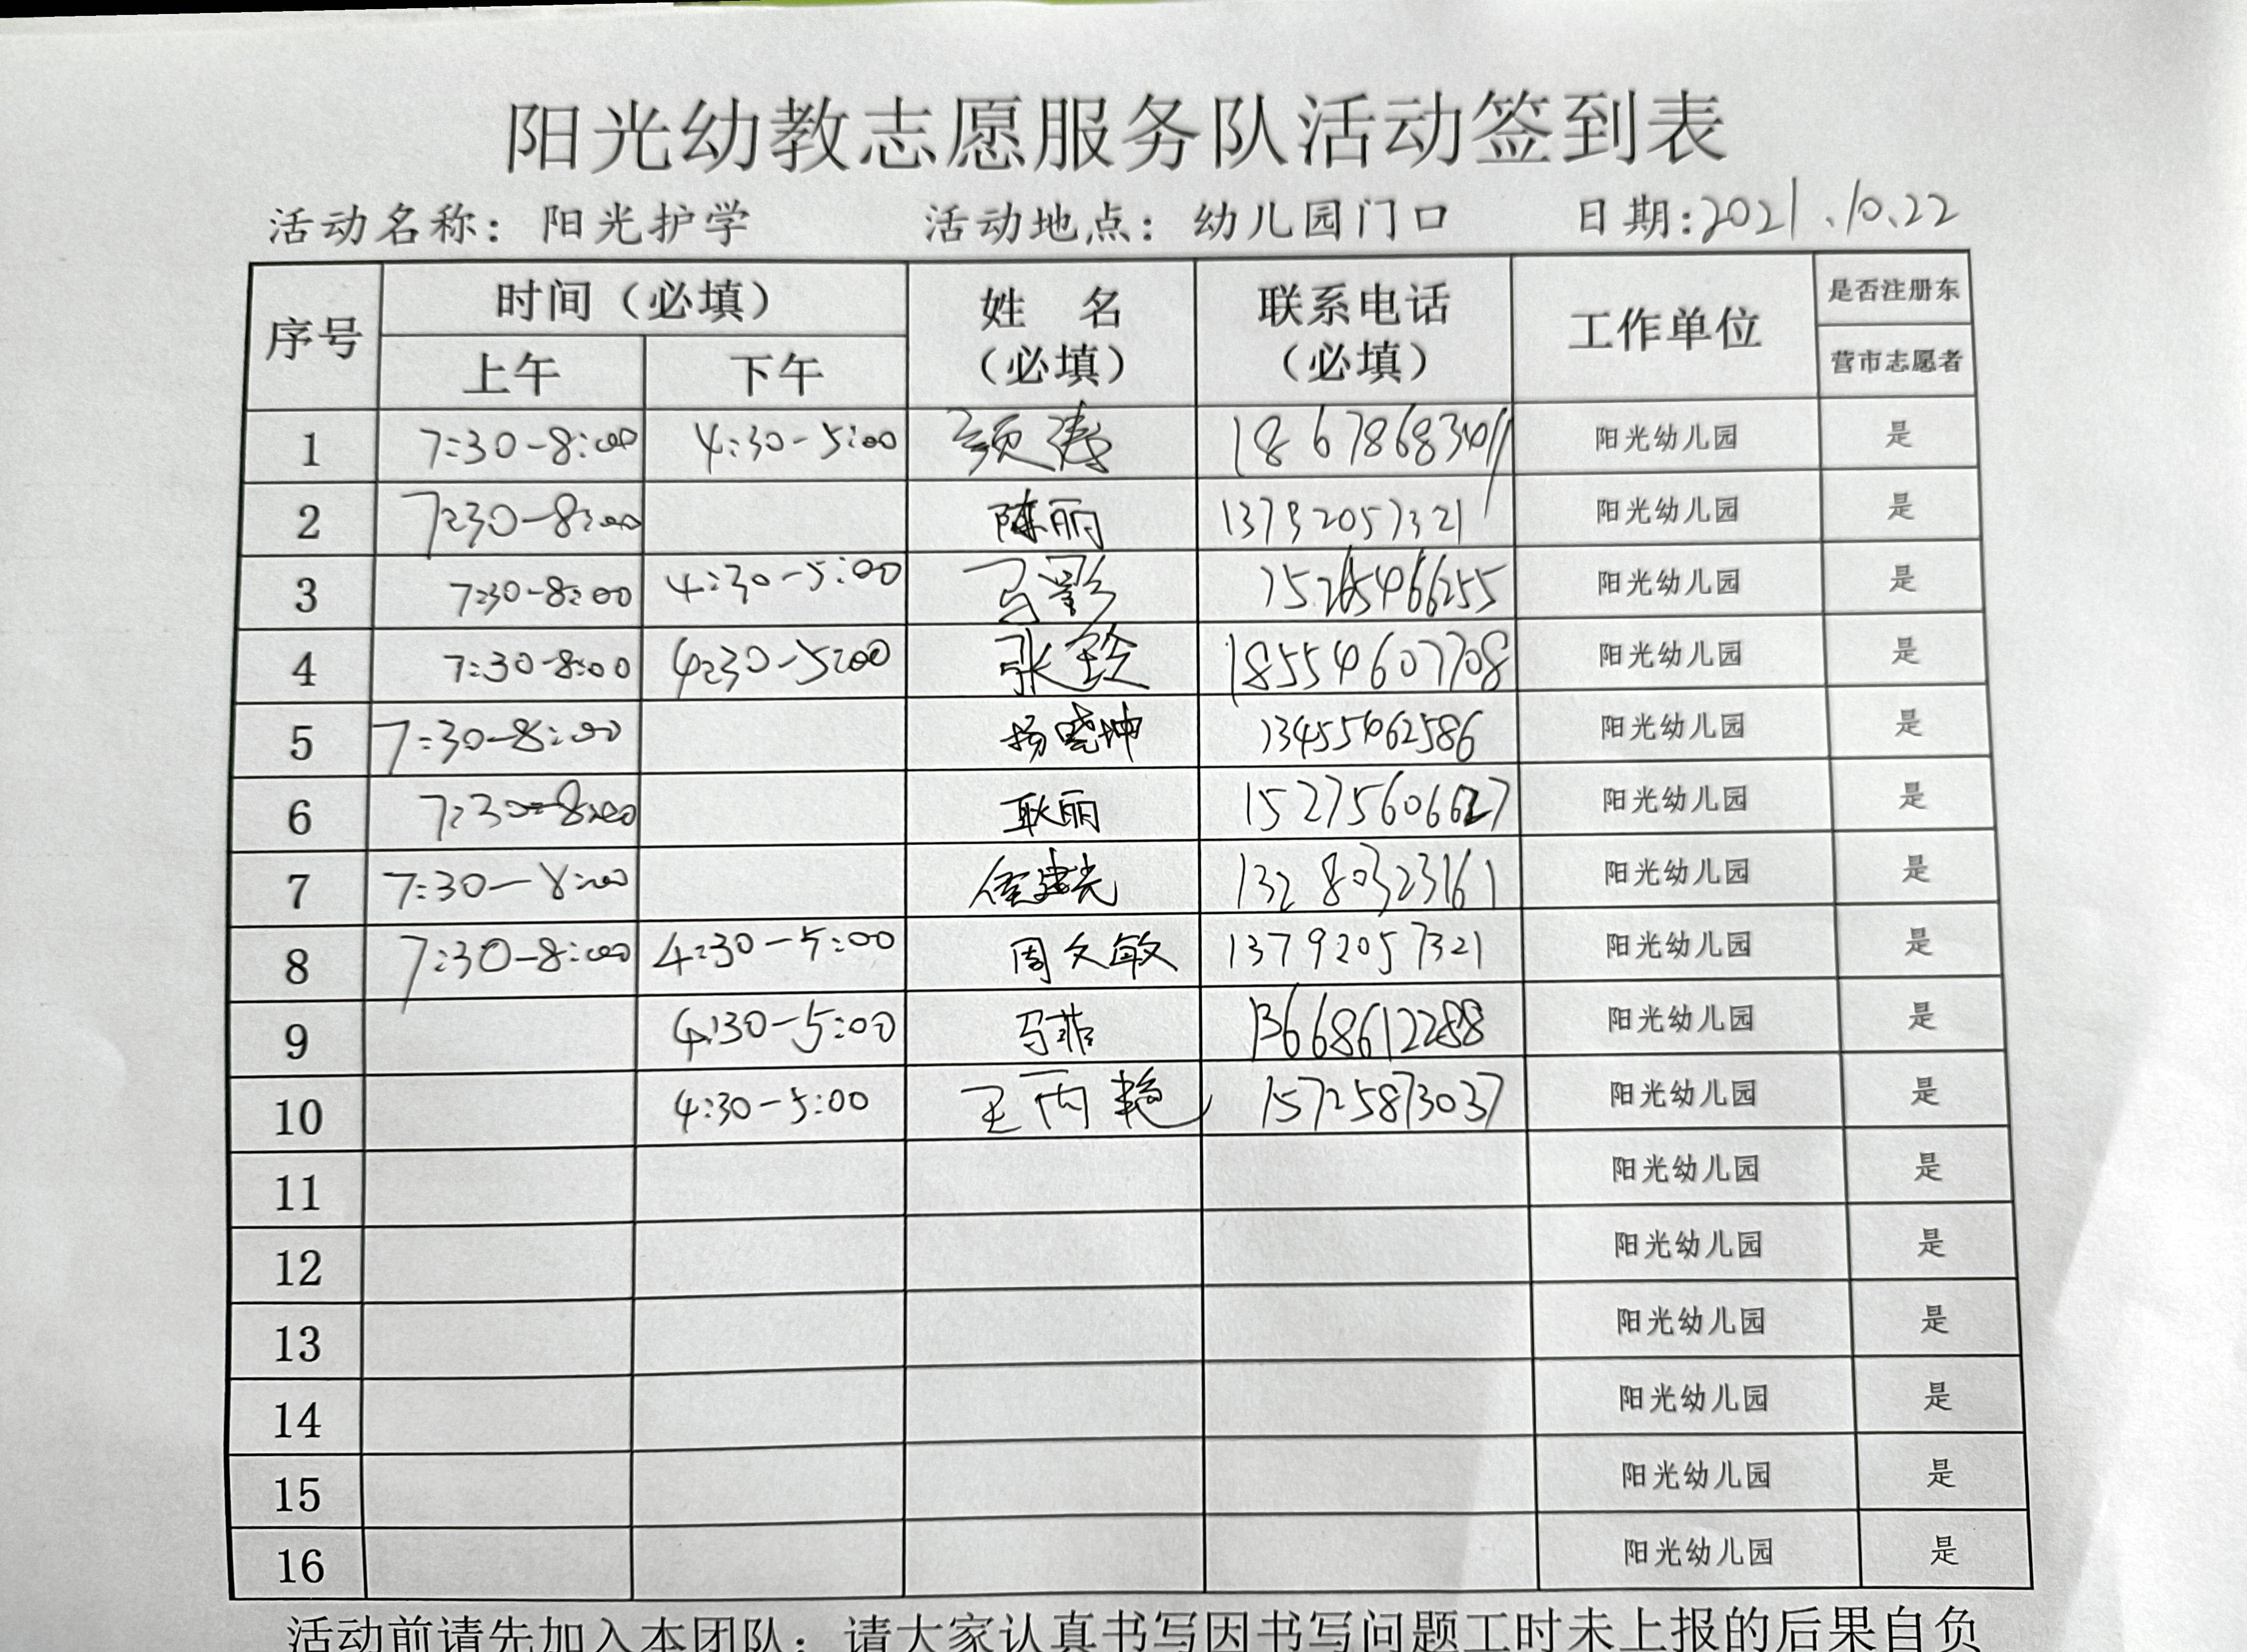 阳光幼教志愿服务队活动签到表
活动名称：阳光护学 活动地点：幼儿园门口 日期:2021.10.22
序号 时间（必填） 姓 名（必填） 联系电话（必填） 工作单位 是否注册东营市志愿者
上午 下午
1 7:30-8:00 4:30-5:00 阳光幼儿园 是
2 7:30-8:00 陈丽 13792057321 阳光幼儿园 是
3 7:30-8:00 4:30-5:00 马影 15265466255 阳光幼儿园 是
4 7:30-8:00 4:30-5:00 张 18554607708 阳光幼儿园 是
5 7:30-8:00 杨晓坤 13455462586 阳光幼儿园 是
6 7:30-8:00 耿丽 15275606627 阳光幼儿园 是
7 7:30-8:00 13280323161 阳光幼儿园 是
8 7:30-8:00 4:30-5:00 周文敏 13792057321 阳光幼儿园 是
9 4:30-5:00 马菲 13668612288 阳光幼儿园 是
10 4:30-5:00 王丙艳 15725873037 阳光幼儿园 是
11 阳光幼儿园 是
12 阳光幼儿园 是
13 阳光幼儿园 是
14 阳光幼儿园 是
15 阳光幼儿园 是
16 阳光幼儿园 是
活动前请先加入本团队；请大家认真书写因书写问题工时未上报的后果自负